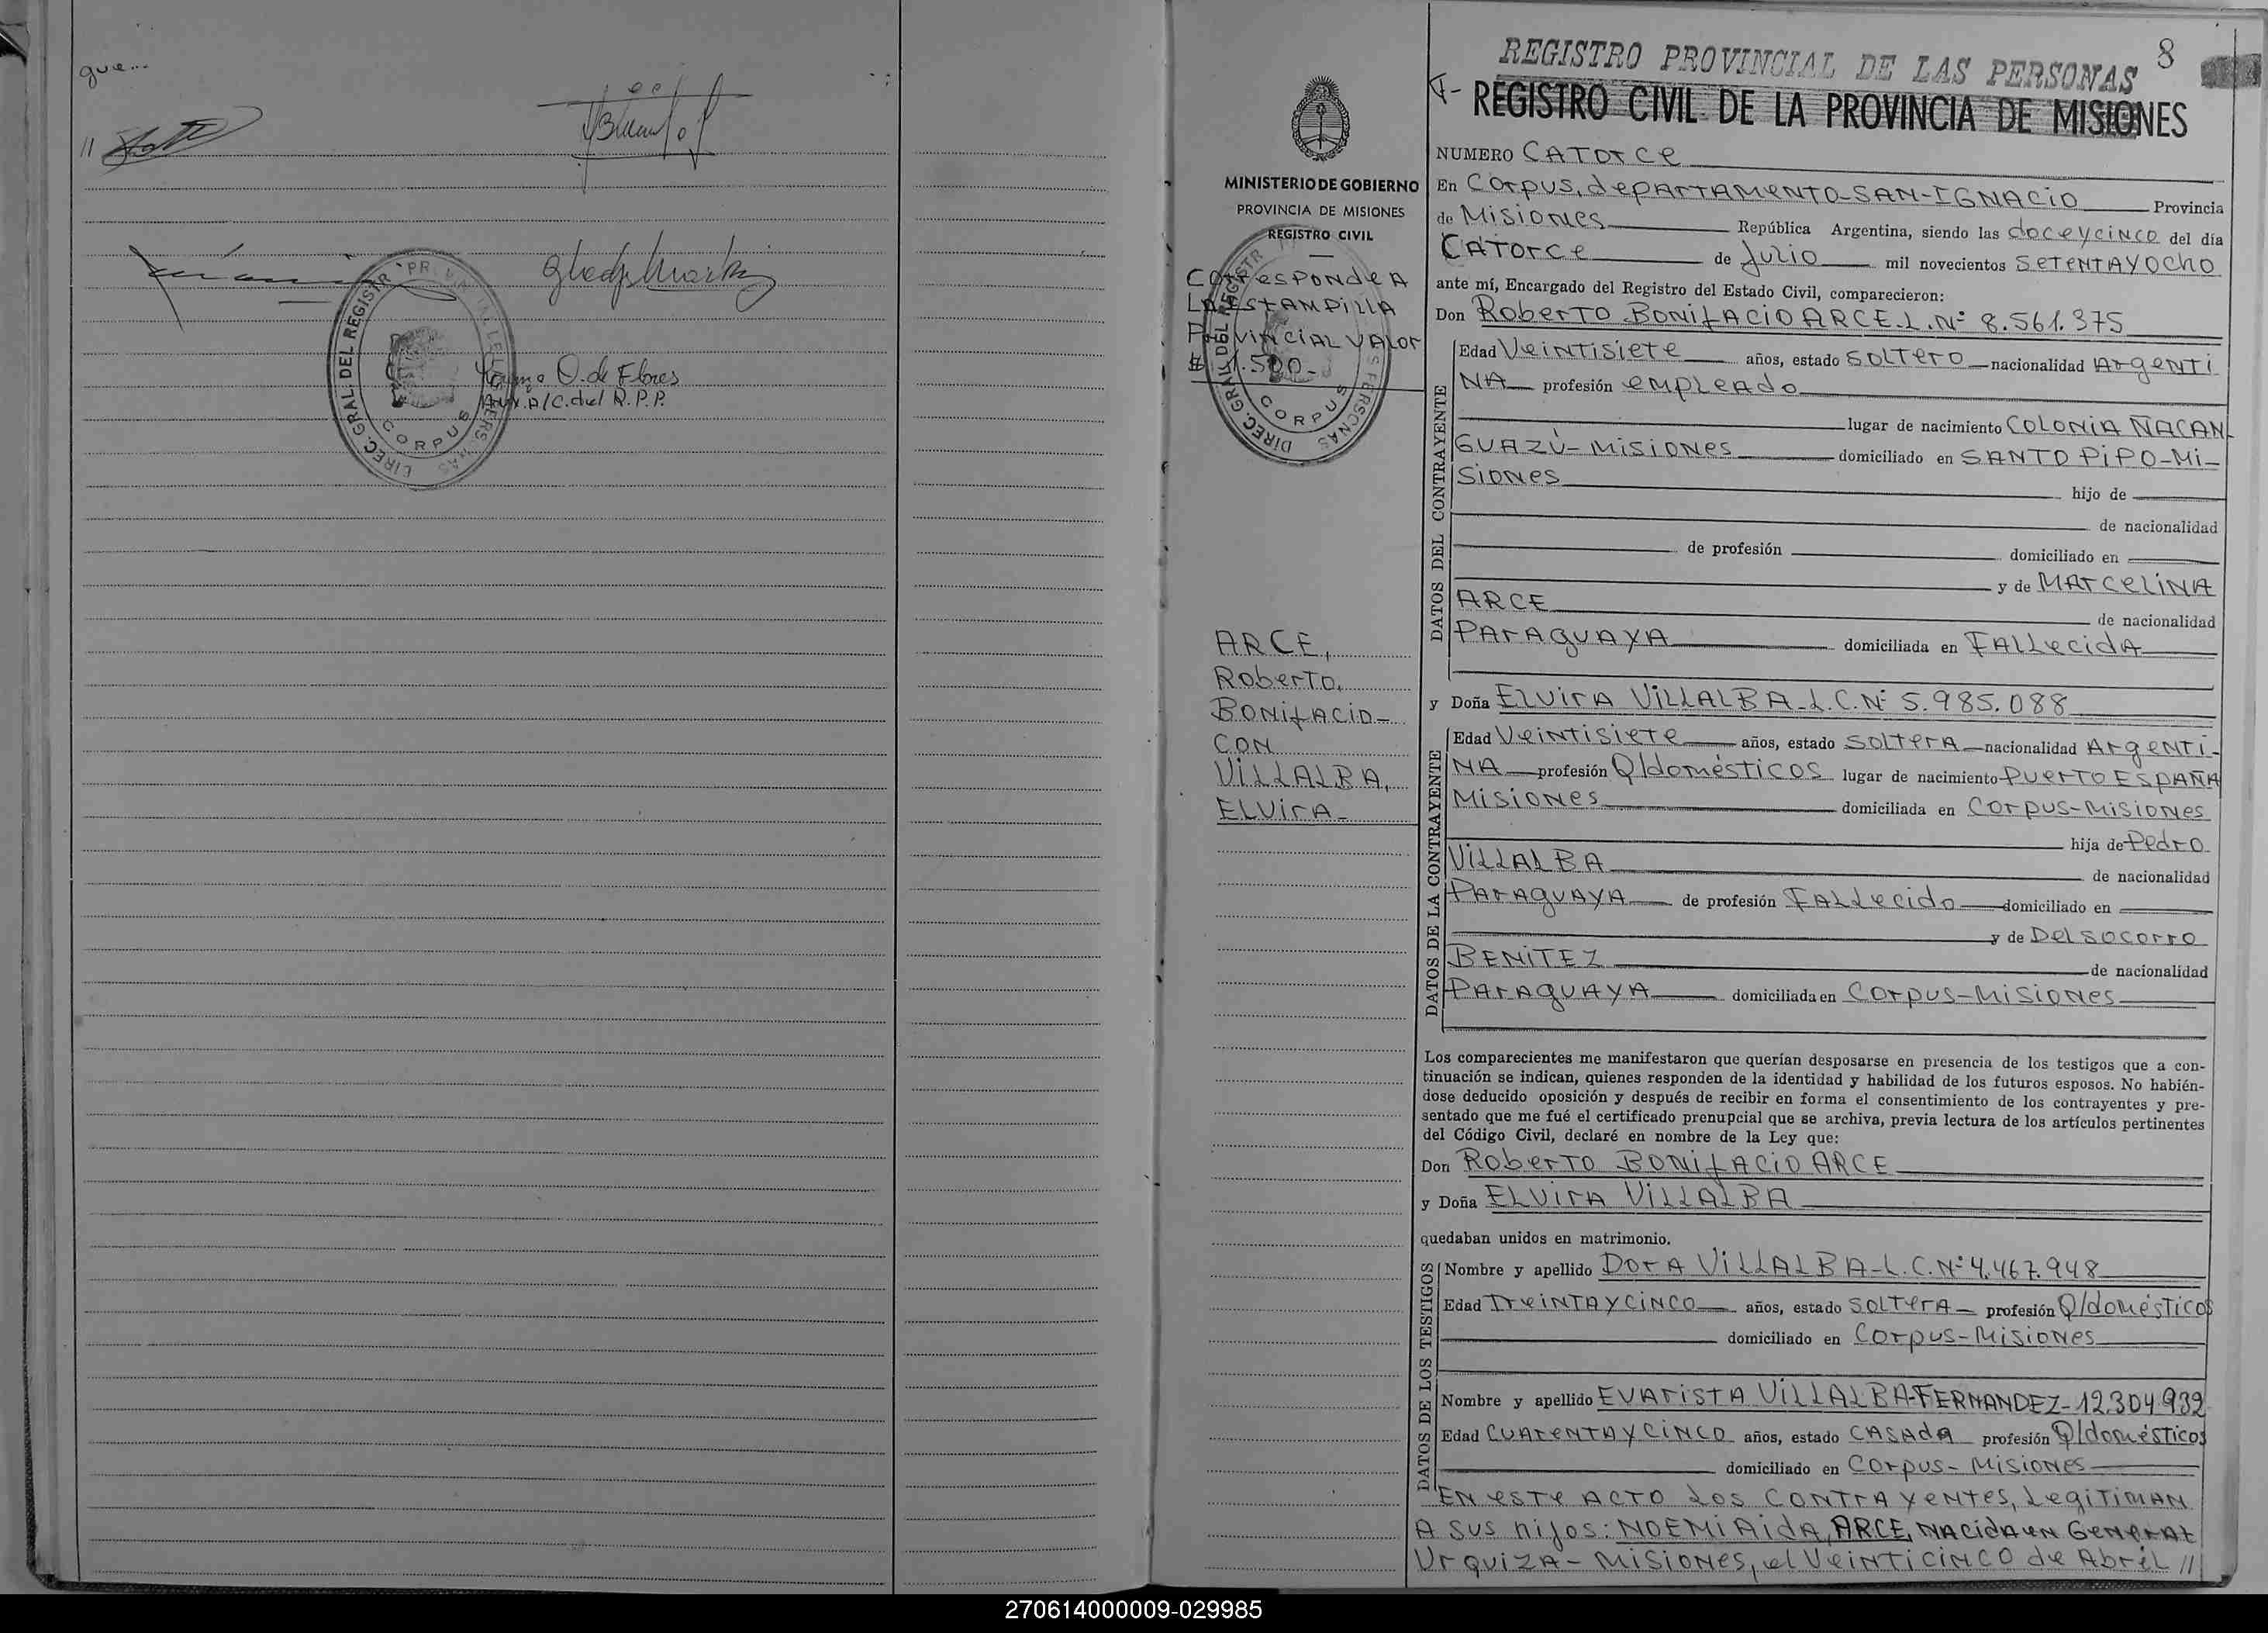 que...
Gladys Martínez
O. de Flores
A/C. del R.P.P.
DIREC. GRAL. DEL REGISTR. PROVINCIAL DE LAS PERSONAS
CORPUS
8
REGISTRO PROVINCIAL DE LAS PERSONAS
REGISTRO CIVIL DE LA PROVINCIA DE MISIONES
MINISTERIO DE GOBIERNO
PROVINCIA DE MISIONES
REGISTRO CIVIL
Corresponde A
LA ESTAMPILLA
PROVINCIAL VALOR
$ 1.500-
CORPUS
ARCE,
Roberto,
BONIFACIO-
CON
VILLALBA,
ELVIRA-
NUMERO CATORCE
En Corpus, departAMENTO-SAN-IGNACIO Provincia
de Misiones República Argentina, siendo las doceycinco del día
CATORCE de Julio mil novecientos SETENTAYOCHO
ante mí, Encargado del Registro del Estado Civil, comparecieron:
Don Roberto BONIFACIO ARCE.L.Nº 8.561.375
DATOS DEL CONTRAYENTE
Edad Veintisiete años, estado SOLTERO nacionalidad Argenti
NA profesión empleado
lugar de nacimiento COLONIA ÑACAN
GUAZÚ-Misiones domiciliado en SANTO PIPO-Mi-
siones hijo de
de nacionalidad
de profesión domiciliado en
y de MARCELINA
ARCE de nacionalidad
PARAGUAYA domiciliada en FALLECIDA
y Doña ELVIRA VILLALBA-L.C.Nº 5.985.088
DATOS DE LA CONTRAYENTE
Edad Veintisiete años, estado SOLTERA nacionalidad Argenti-
NA profesión Q/domésticos lugar de nacimiento PUERTO ESPAÑA
Misiones domiciliada en Corpus-Misiones
hija de Pedro
VILLALBA de nacionalidad
PARAGUAYA de profesión FALLECIDO domiciliado en
y de Del SOCORRO
BENITEZ de nacionalidad
PARAGUAYA domiciliada en Corpus-Misiones
Los comparecientes me manifestaron que querían desposarse en presencia de los testigos que a con-
tinuación se indican, quienes responden de la identidad y habilidad de los futuros esposos. No habién-
dose deducido oposición y después de recibir en forma el consentimiento de los contrayentes y pre-
sentado que me fué el certificado prenupcial que se archiva, previa lectura de los artículos pertinentes
del Código Civil, declaré en nombre de la Ley que:
Don Roberto BONIFACIO ARCE
y Doña ELVIRA VILLALBA
quedaban unidos en matrimonio.
DATOS DE LOS TESTIGOS
Nombre y apellido DORA VILLALBA-L.C.Nº 4.467.948
Edad TreiNTAYCINCO años, estado SOLTERA profesión Q/domésticos
domiciliado en Corpus-Misiones
Nombre y apellido EVARISTA VILLALBA-FERNANDEZ-12.304.932
Edad CUARENTAYCINCO años, estado CASADA profesión Q/domésticos
domiciliado en Corpus-Misiones
EN este ACTO LOS CONTRAYENTES, LEGITIMAN
A SUS hijos: NOEMI AIDA, ARCE, NACIDA EN GENERAL
URQUIZA-MISIONES, el VEINTICINCO de Abril //
270614000009-029985